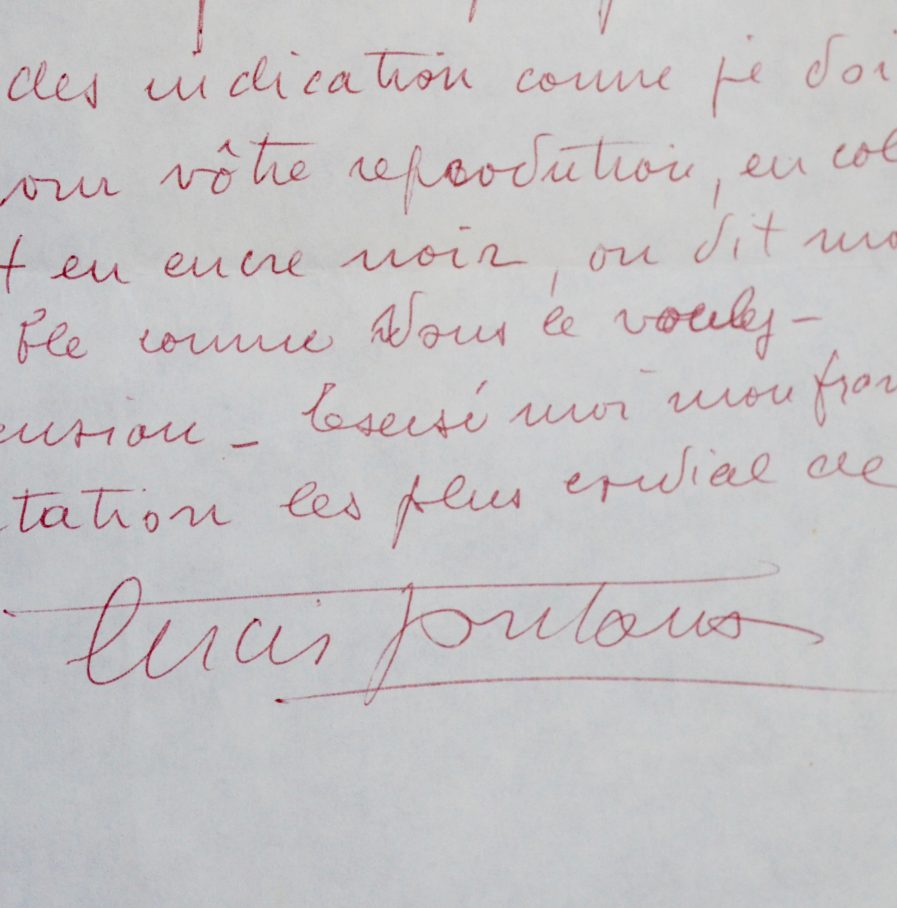 des indication comme je doi
our vôtre reprodution, en col
t en encre noir, ou dit mo
ble comme Vous le voulez –
ension – Escusé moi mon fran
tation les plus cordial de
Lucio Fontana